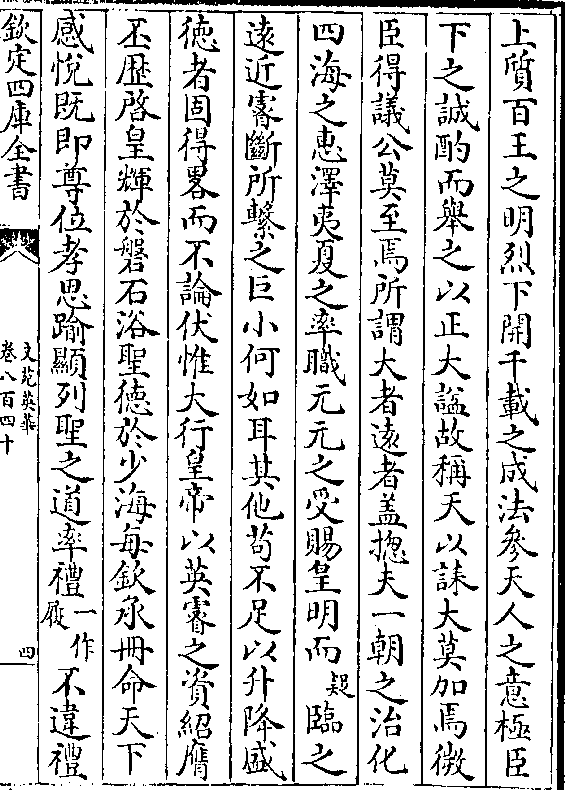 上質百王之明烈下開千載之成法參天人之意極臣
下之誠酌而舉之以正大諡故稱天以誄大莫加焉微
臣得議公莫至焉所謂大者逺者盖揔夫一朝之治化
四海之惠澤夷夏之率職元元之受賜皇明而疑臨之
逺近睿斷所繫之巨小何如耳其他苟不足以升降盛
徳者固得畧而不論伏惟大行皇帝以英睿之資紹膺
丕歴啓皇輝於磐石浴聖德於少海每欽承冊命天下
感悅既即尊位孝思踰顯列聖之道率禮一作履不違禮
欽定四庫全書
文苑英華
卷八百四十
四